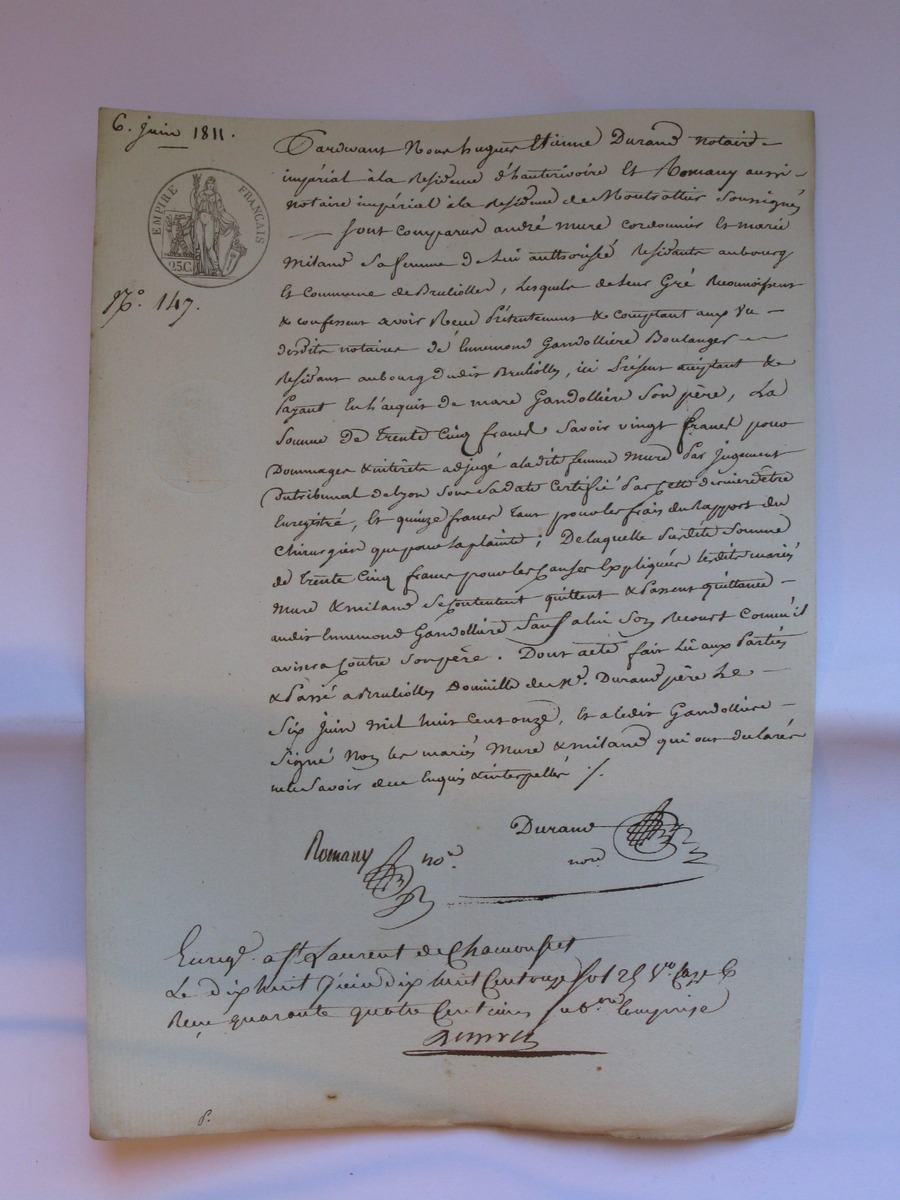 6. juin 1811.
EMPIRE FRANÇAIS
25C.
N.o 147.
Pardevant Nous hugues Etienne Durand notaire
impérial à la Residence d'hauterivoire Et Romany aussi
notaire impérial à la Residence de Montrottier Soussignés
Sont comparus andré mure cordonnier Et marie
Miland Sa femme de Lui authorisée Residants au bourg
Et Commune de Brulioles, Lesquels de Leur Gré Reconnoissent
& confessent avoir Receu Présentement & comptant aux Vu
desdits notaires de Ennemond Gandollière Boulanger
Residant au bourg dudit Bruliolles, ici Présent acceptant &
Payant En L'acquit de marc Gandollière Son père, La
Somme de trente Cinq francs Savoir vingt francs pour
Dommages & intérêts adjugé a ladite femme Mure Par jugement
du tribunal de Lyon Sous Sa date Certifié Par cette dernière être
Enregistré, Et quinze francs tant pour les frais du Rapport du
Chirurgien que pour la plainte; De laquelle Susdite Somme
de trente Cinq francs pour les Causes Expliquées lesdits mariés
Mure & miland Se Contentent quittent & Passent quittance
audit Ennemond Gandollière Sauf a lui Son Recours Comme il
avisera Contre Son père. Dont acte fait Lû aux Parties
& Passé a Bruliolles Domicille de Mr. Durand père Le
Six Juin Mil huit Cent onze, Et a ledit Gandollière
Signé Non les mariés Mure & miland qui ont déclarés
ne le Savoir de ce Enquis & interpellés ./.
Durand
Romany no.e
nore
Enreg.é a St. Laurent de Chamousset
Le dix huit Juin dix huit Cent onze fol 25 Vo. Case 6
Reçu quarante quatre Centimes Comprise